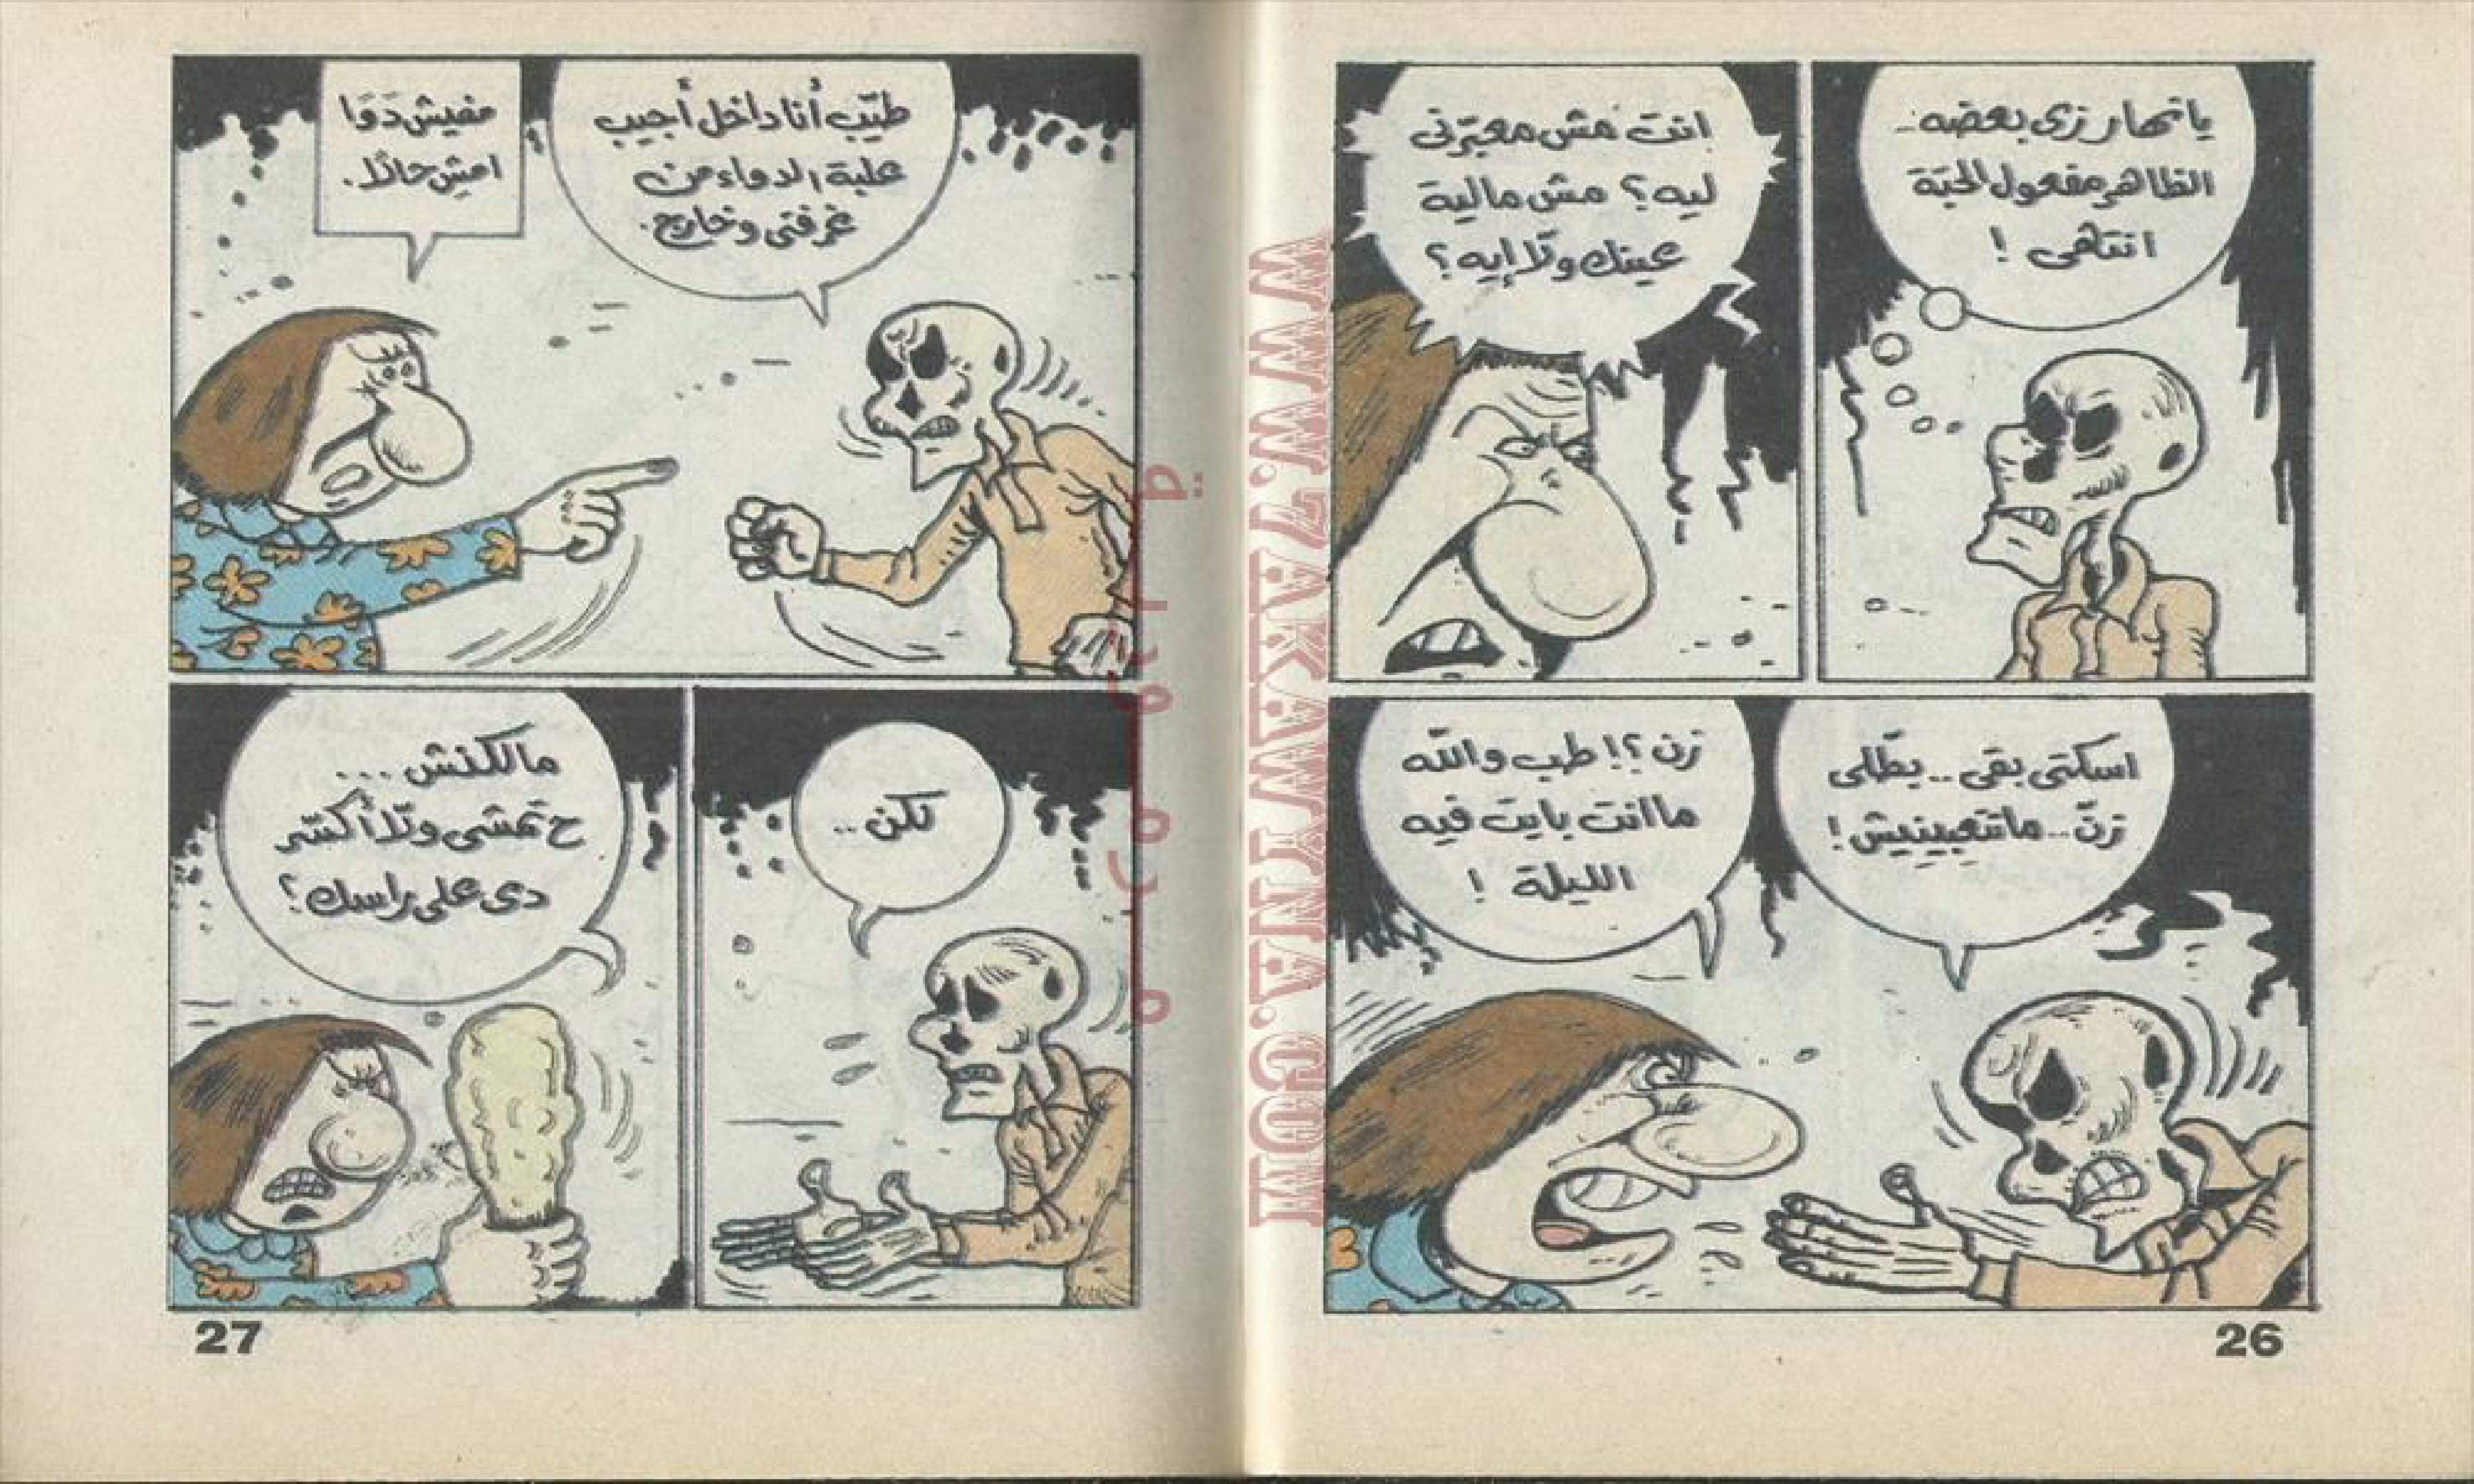 يا نهار زى بعضه..
الظاهر مفعول الحبّة
انتهى !
انت مش معبّرنى
ليه؟ مش مالية
عينك ولّا إيه؟
اسكتى بقى .. بطّلى
زنّ .. ماتتعبينيش !
زن ؟! طب والله
ما انت بايت فيه
الليلة !
26
طيّب أنا داخل أجيب
علبة الدواء من
غرفتى وخارج.
مفيش دَوَا
امشِ حالًا.
لكن ..
مالكنش ...
ح تمشى ولّا أكسّر
دى على راسك؟
27
WWW.7AKAWYNA.COM